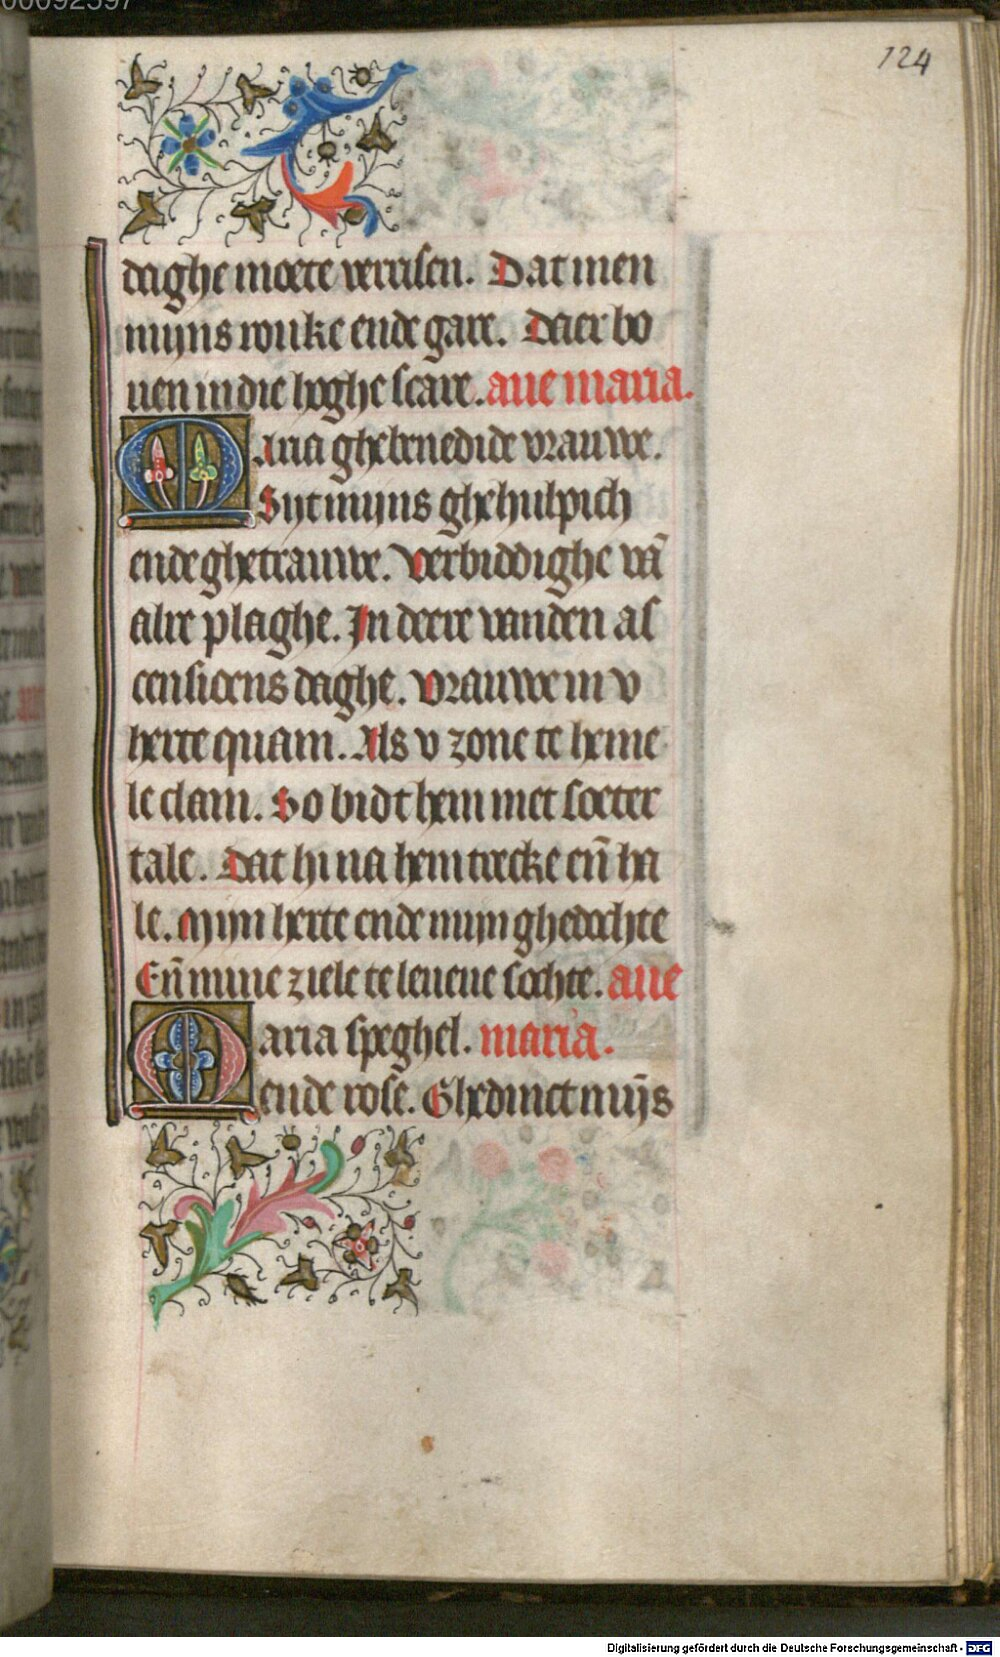 124
daghe moete verrisen. Dat men
mijns wuke ende gare. Daer bo
uen in die hoghe scare. aue maria.
Maria ghebenedide vrauwe.
Sijt mijns ghehulpich
ende ghetrauwe. Verbiddighe vā
alre plaghe. In deere vanden as
censioens daghe. Vrauwe in v
herte quam. Als v zone te heme
le clam. So bidt hem met soeter
tale. Dat hi na hem trecke eñ ha
le. Mijn herte ende mijn ghedochte
Eñ mine ziele te leuene sochte. aue
Maria speghel. maria.
ende rose. Ghedinct mijs
Digitalisierung gefördert durch die Deutsche Forschungsgemeinschaft - DFG